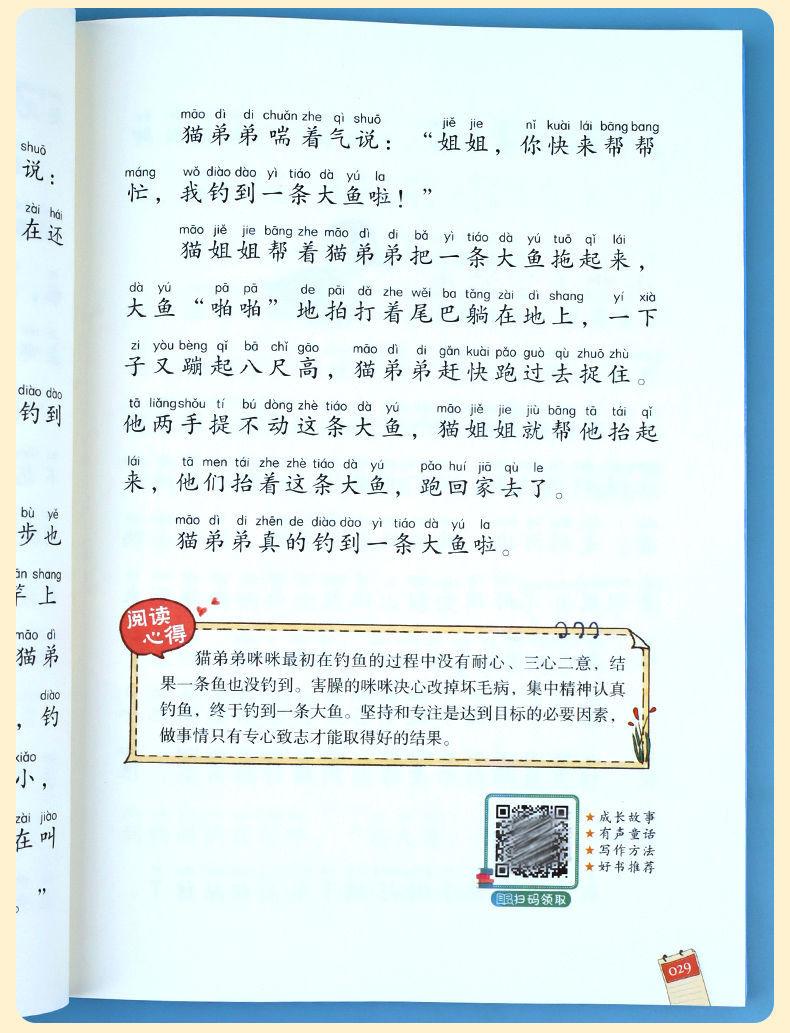 shuō
说：
zài hái
在还
diào dào
钓到
bù yě
步也
ān shang
竿上
māo dì
猫弟
diào
，钓
xiǎo
小，
zài jiào
在叫
”
māo dì di chuǎn zhe qì shuō jiě jie nǐ kuài lái bāng bang
猫弟弟喘着气说：“姐姐，你快来帮帮
máng wǒ diào dào yì tiáo dà yú la
忙，我钓到一条大鱼啦！”
māo jiě jie bāng zhe māo dì di bǎ yì tiáo dà yú tuō qǐ lái
猫姐姐帮着猫弟弟把一条大鱼拖起来，
dà yú pā pā de pāi dǎ zhe wěi ba tǎng zài dì shang yí xià
大鱼“啪啪”地拍打着尾巴躺在地上，一下
zi yòu bèng qǐ bā chǐ gāo māo dì di gǎn kuài pǎo guò qù zhuō zhù
子又蹦起八尺高，猫弟弟赶快跑过去捉住。
tā liǎng shǒu tí bú dòng zhè tiáo dà yú māo jiě jie jiù bāng tā tái qǐ
他两手提不动这条大鱼，猫姐姐就帮他抬起
lái tā men tái zhe zhè tiáo dà yú pǎo huí jiā qù le
来，他们抬着这条大鱼，跑回家去了。
māo dì di zhēn de diào dào yì tiáo dà yú la
猫弟弟真的钓到一条大鱼啦。
阅读
心得
猫弟弟咪咪最初在钓鱼的过程中没有耐心、三心二意，结
果一条鱼也没钓到。害臊的咪咪决心改掉坏毛病，集中精神认真
钓鱼，终于钓到一条大鱼。坚持和专注是达到目标的必要因素，
做事情只有专心致志才能取得好的结果。
★成长故事
★有声童话
★写作方法
★好书推荐
扫码领取
029